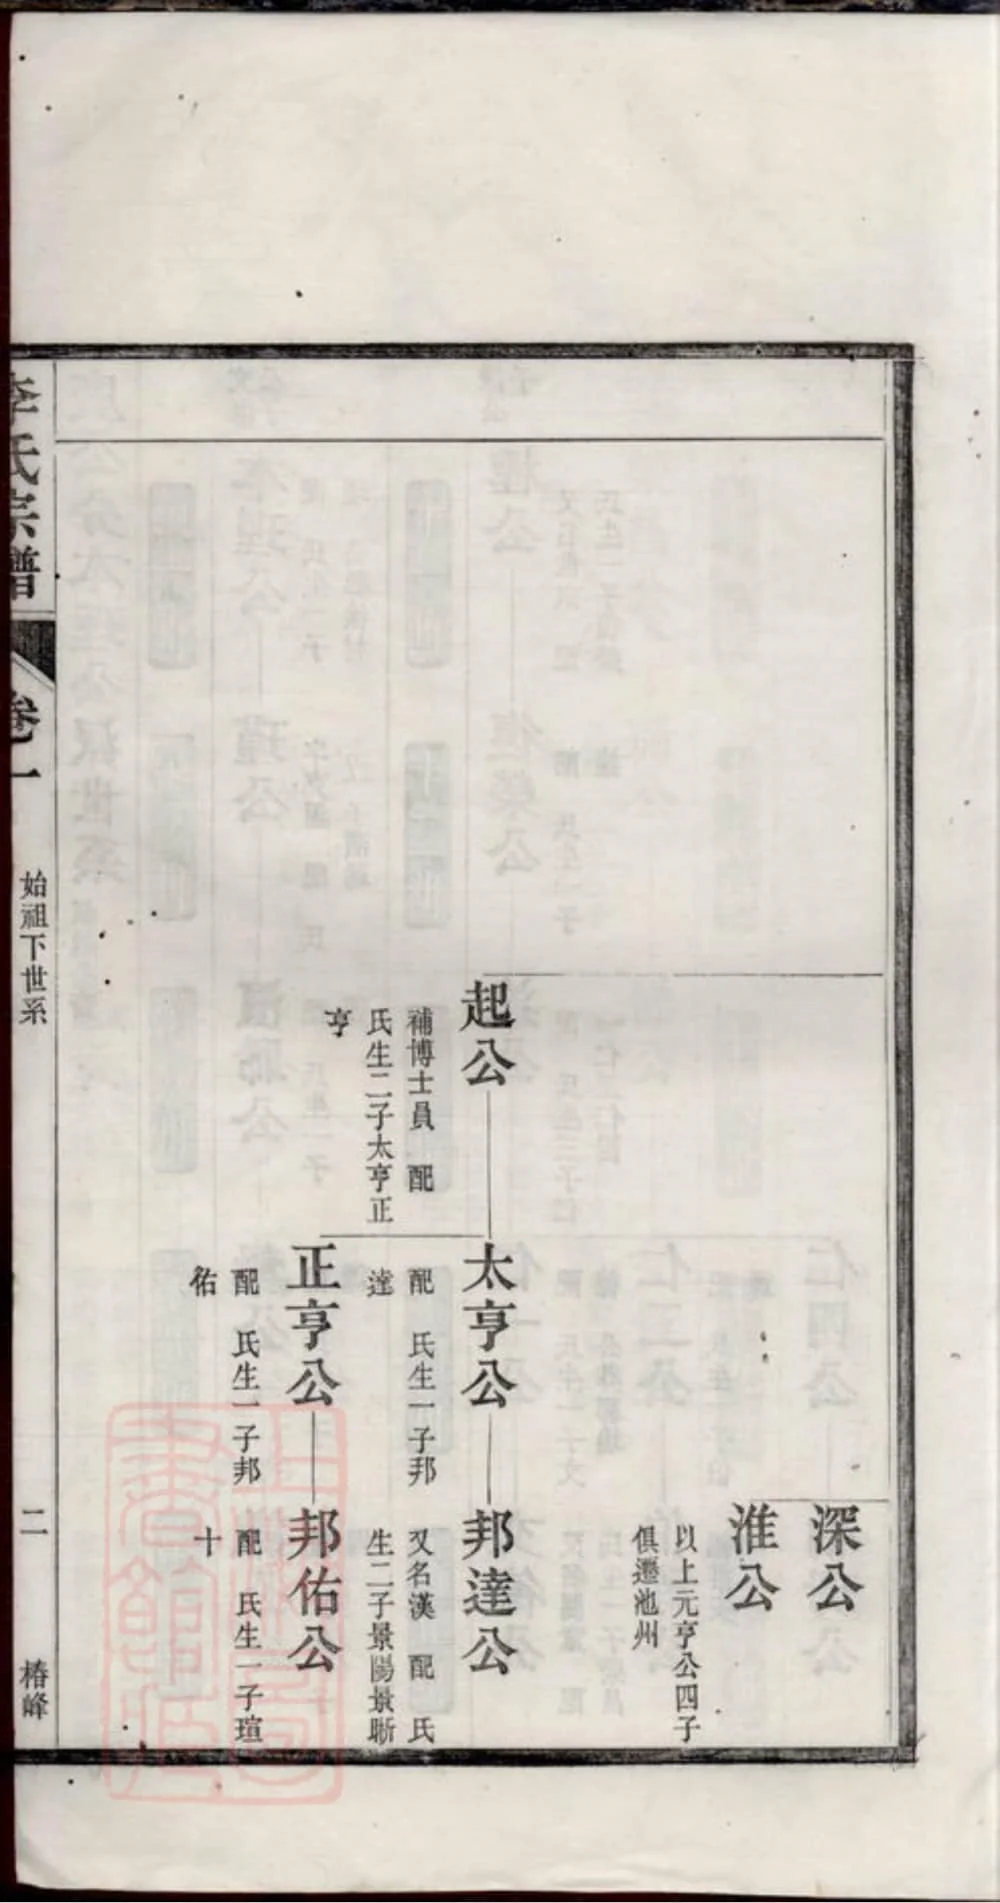 深公
淮公
以上元亨公四子
俱遷池州
起公
補博士員　配
氏生二子太亨正
亨
太亨公
配　氏生一子邦
達
邦達公
又名漢　配　氏
生二子景陽景晰
正亨公
配　氏生一子邦
佑
邦佑公
配　氏生一子瑄
十
李氏宗譜
卷一
始祖下世系
二
椿峰